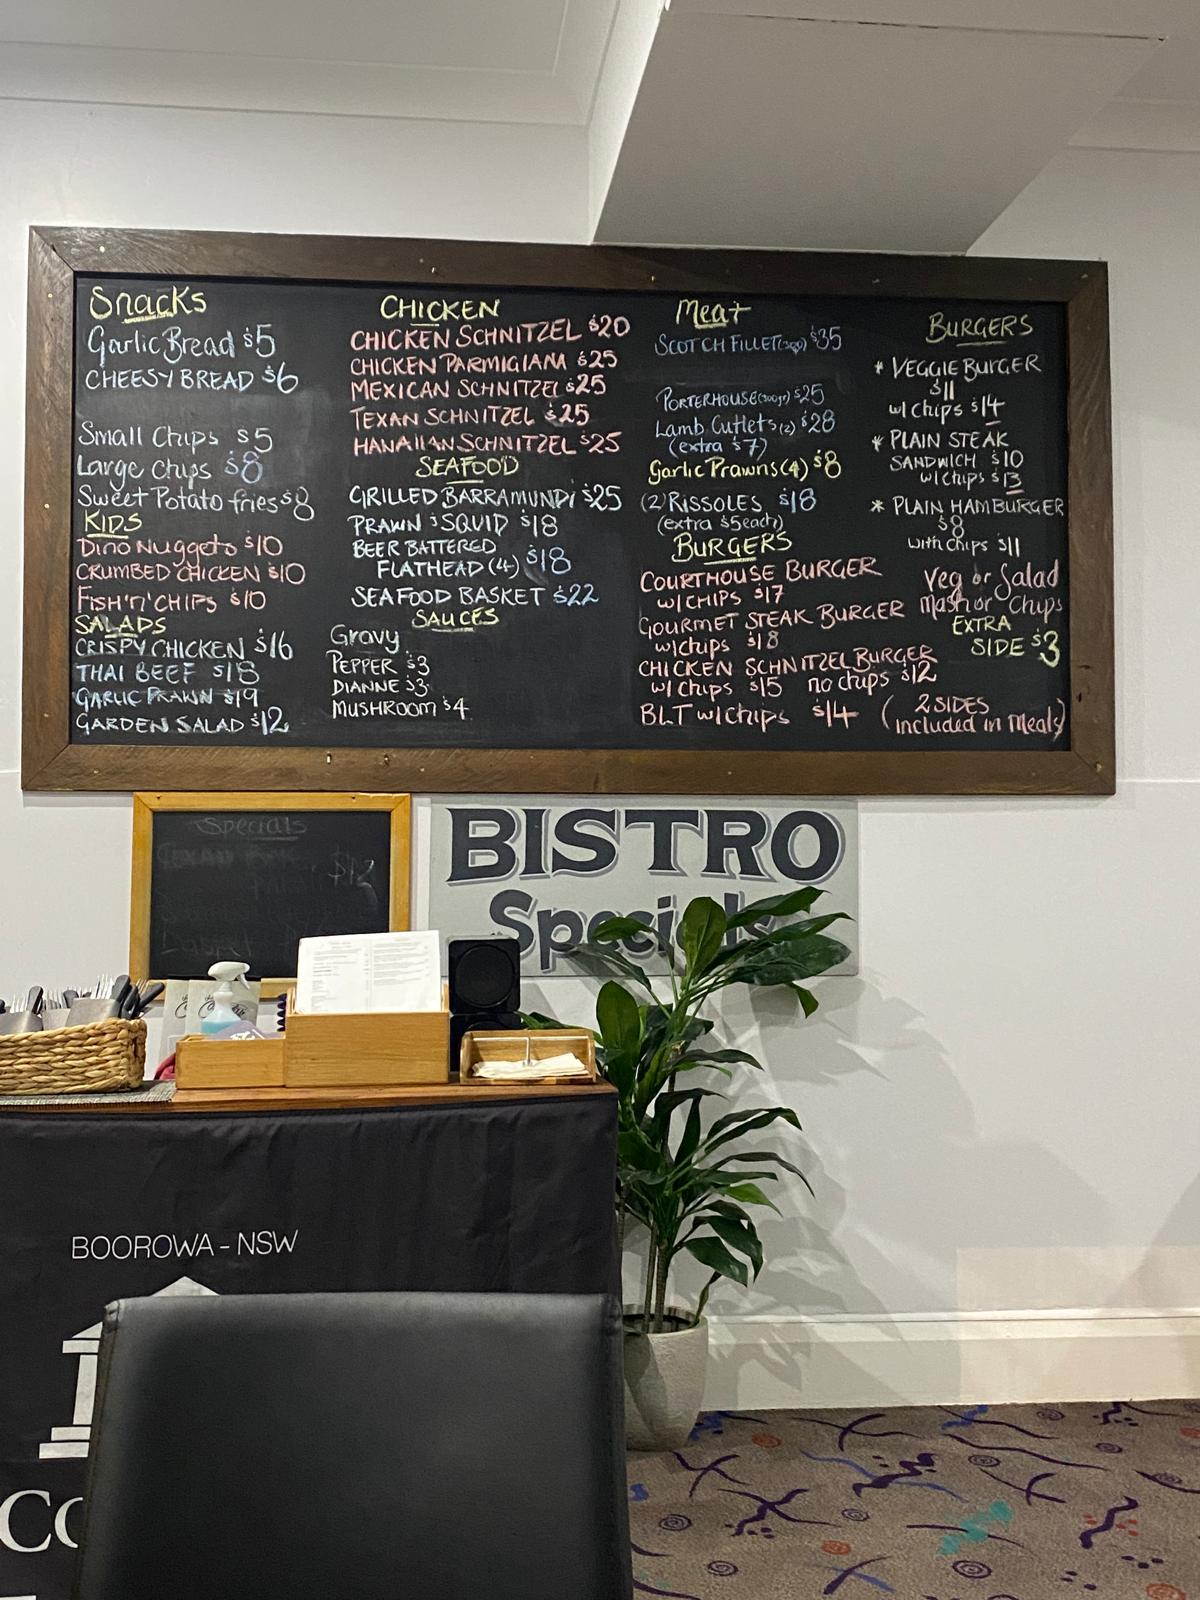 Snacks
Garlic Bread $5
CHEESY BREAD $6
Small Chips $5
Large Chips $8
Sweet Potato fries $8
KIDS
Dino Nuggets $10
CRUMBED CHICKEN $10
FISH 'n' CHIPS $10
SALADS
CRISPY CHICKEN $16
THAI BEEF $18
GARLIC PRAWN $19
GARDEN SALAD $12
CHICKEN
CHICKEN SCHNITZEL $20
CHICKEN PARMIGIANA $25
MEXICAN SCHNITZEL $25
TEXAN SCHNITZEL $25
HAWAIIAN SCHNITZEL $25
SEAFOOD
GRILLED BARRAMUNDI $25
PRAWN & SQUID $18
BEER BATTERED
FLATHEAD (4) $18
SEAFOOD BASKET $22
SAUCES
Gravy
PEPPER $3
DIANNE $3
MUSHROOM $4
Meat
SCOTCH FILLET $35
PORTERHOUSE (300gr) $25
Lamb Cutlets (2) $28
(extra $7)
Garlic Prawns (4) $8
(2) RISSOLES $18
(extra $5 each)
BURGERS
COURTHOUSE BURGER
w/ CHIPS $17
GOURMET STEAK BURGER
w/ chips $18
CHICKEN SCHNITZEL BURGER
w/ chips $15 no chips $12
BLT w/ chips $14
BURGERS
* VEGGIE BURGER
$11
w/ Chips $14
* PLAIN STEAK
SANDWICH $10
w/ chips $13
* PLAIN HAMBURGER
$8
with chips $11
Veg or Salad
Mash or Chips
EXTRA
SIDE $3
(2 SIDES
included in Meals)
Specials
$12
BISTRO
Specials
BOOROWA - NSW